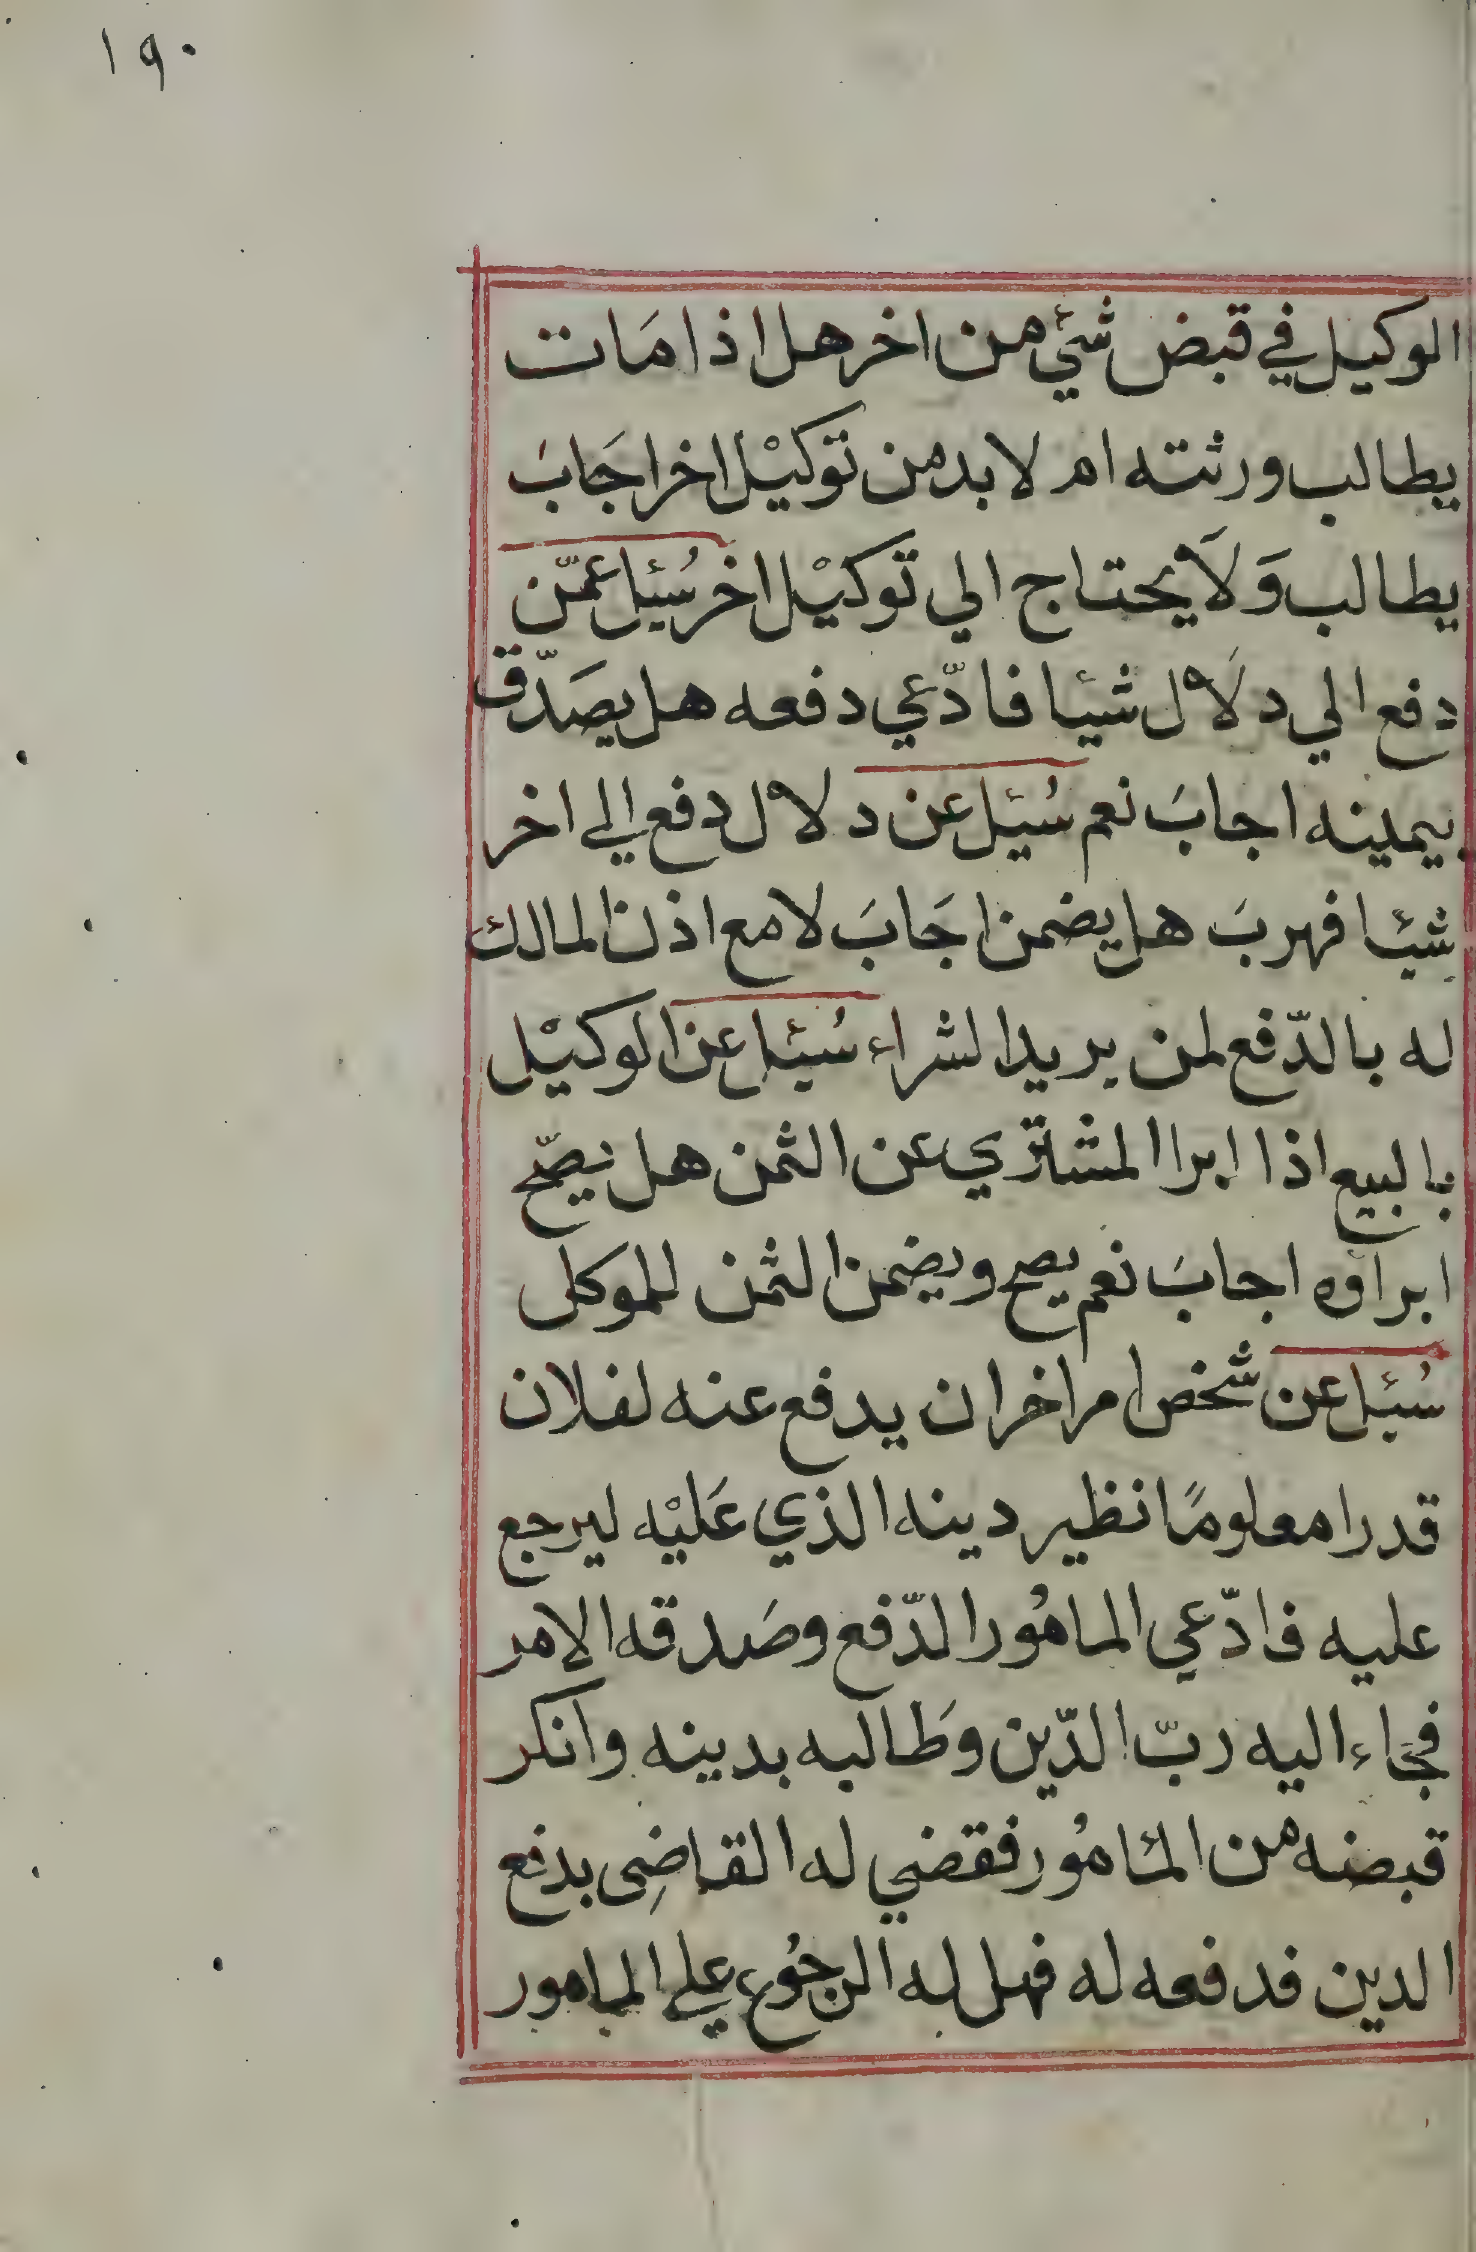 ١٩٠
الوكيل في قبض شئي من اخر هل اذا مَات
يطالب ورثته ام لا بد من توكيْل اخر اجَابَ
يطالب وَلَا يحتاج الي توكيْل اخر سُئِل عمّن
دفع الي دلَال شيئا فادّعي دفعه هل يصَدّق
بيمينه اجابَ نعم سُئِل عن دلال دفع الي اخر
شيئا فهربَ هل يضمن اجَابَ لا مع اذن المالك
له بالدّفع لمن يريد الشراء سُئِل عن الوكيْل
بالبيع اذا ابرا المشتري عن الثمن هل يصّح
ابراؤه اجابَ نعم يصح ويضمن الثمن للموكل
سُئِل عن شخص امر اخر ان يدفع عنه لفلان
قدرا معلومًا نظير دينه الذي عَليْه ليرجع
عليه فادّعي المامُور الدّفع وصَدقه الامر
فجَاء اليه ربّ الدّين وطَالبه بدينه وانكر
قبضه من المامُور فقضي له القاضِى بدفع
الدين فدفعه له فهل له الرجُوع علي المامور